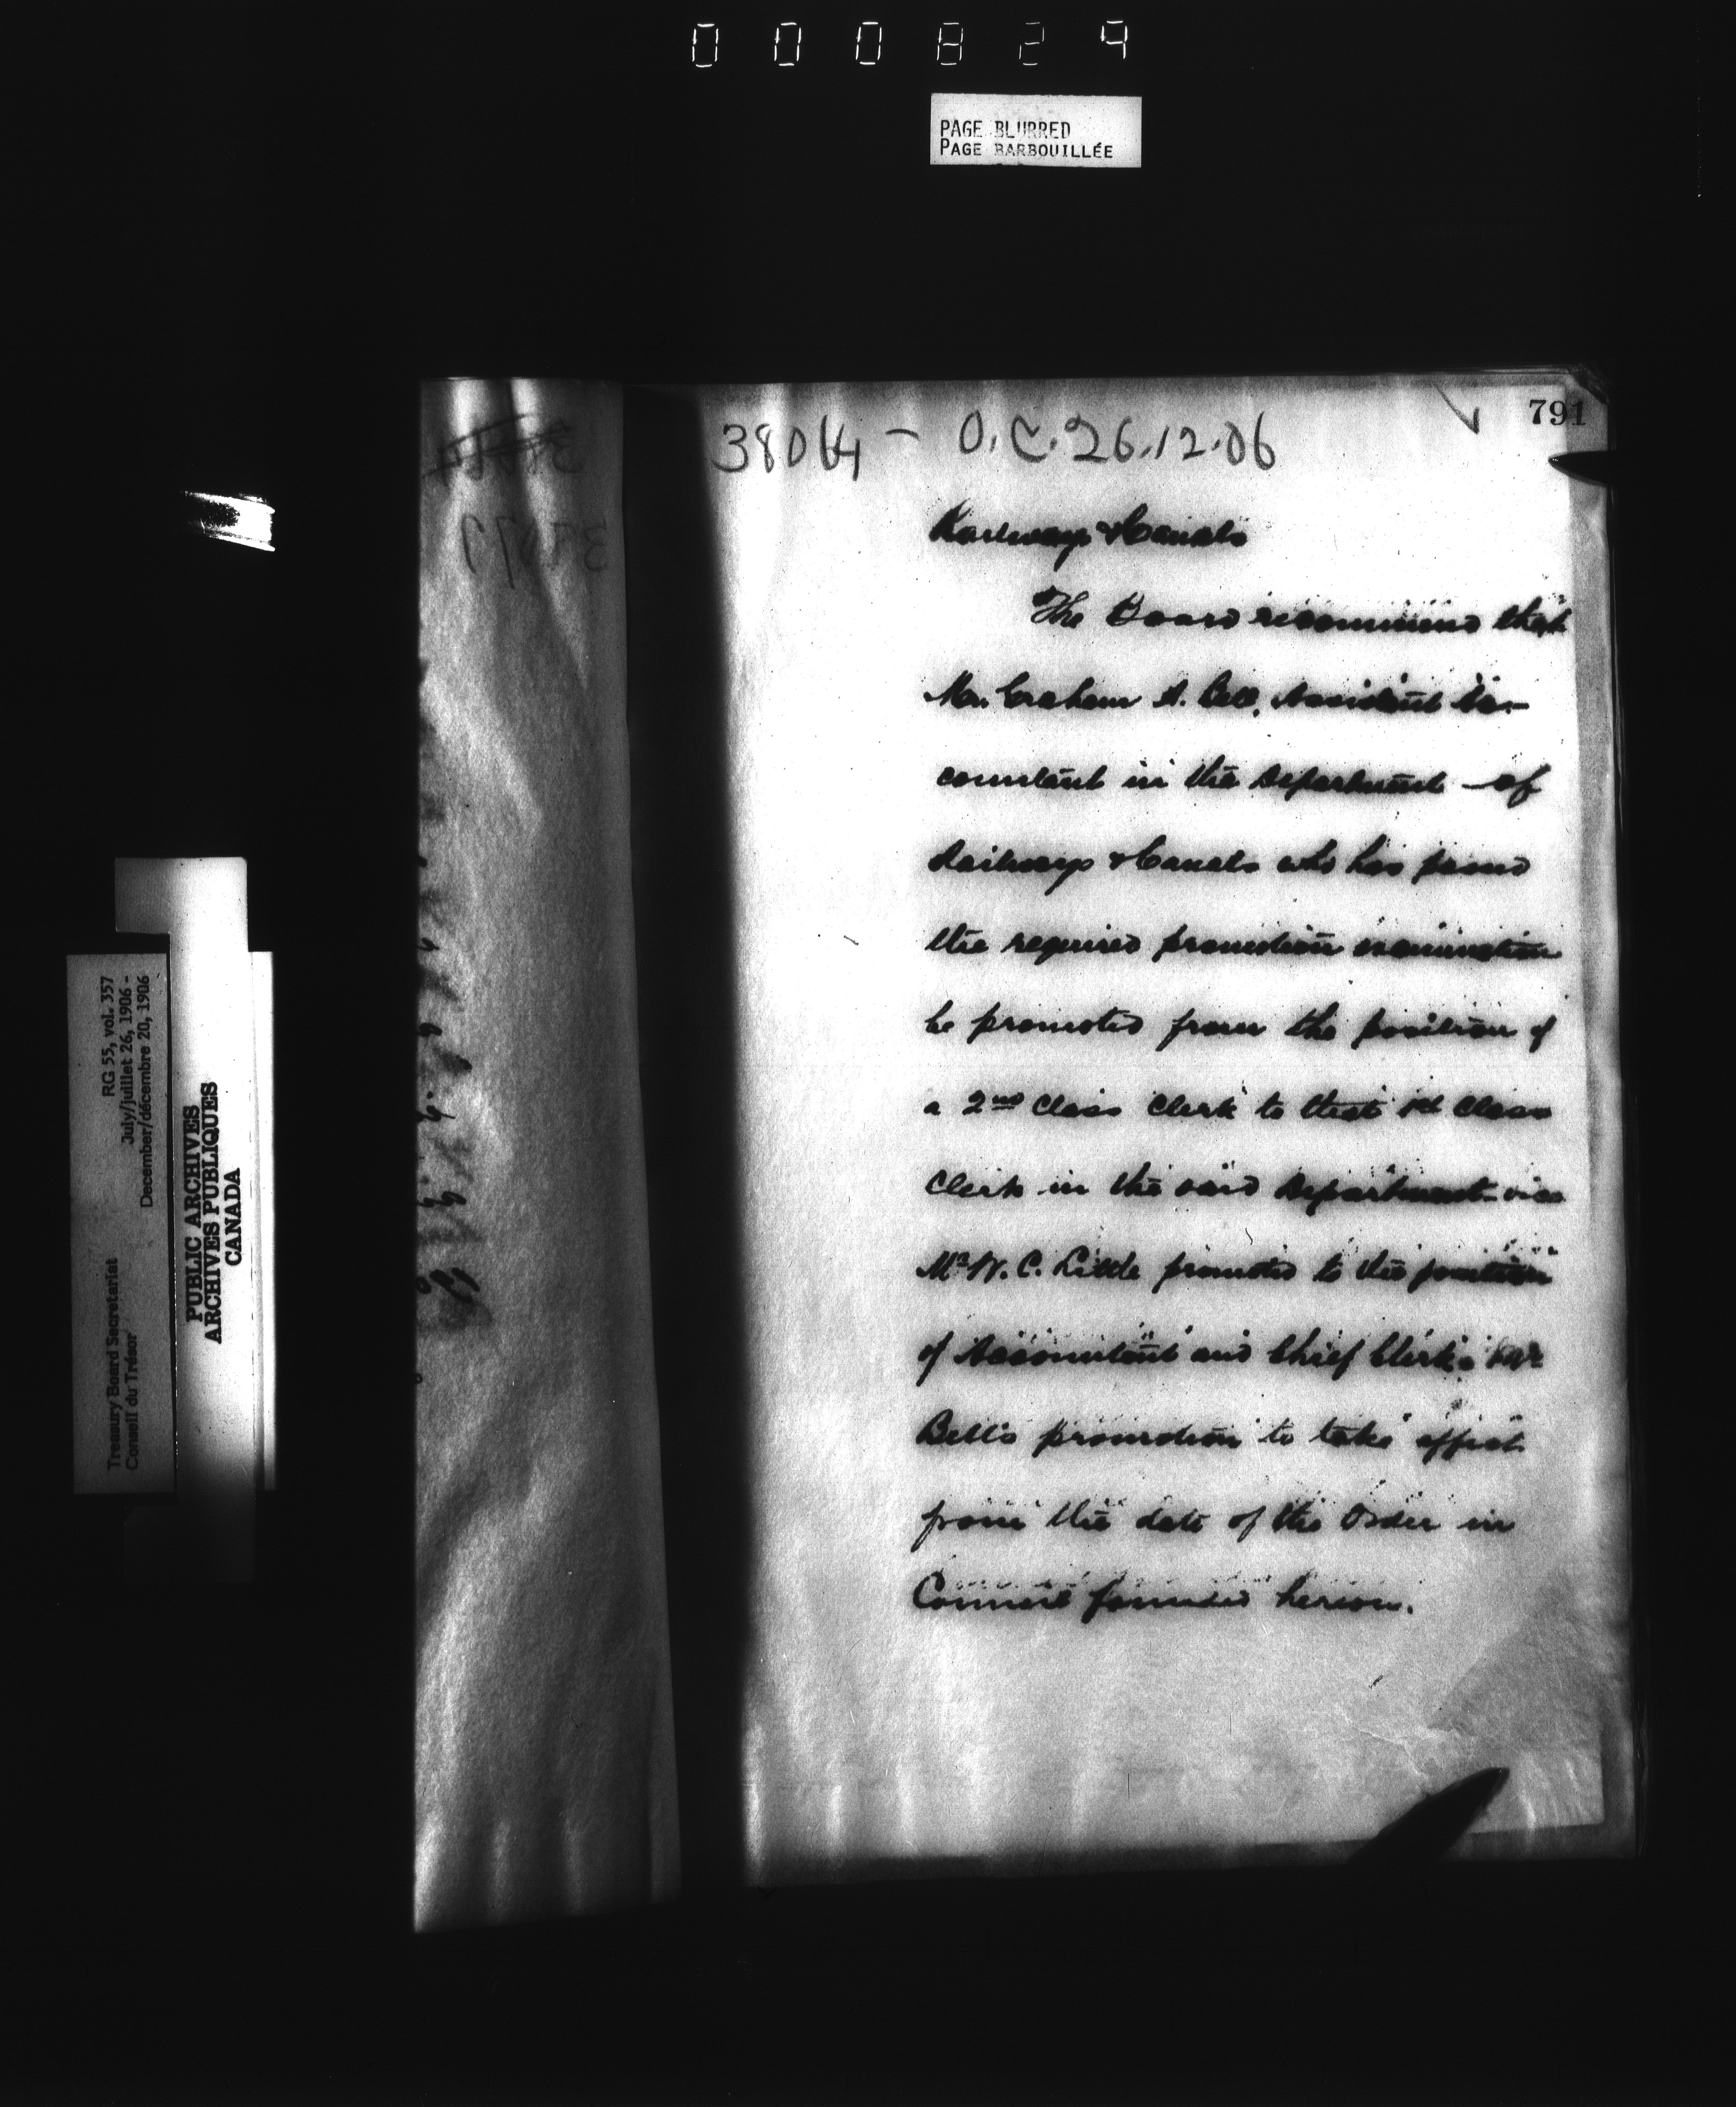 000829
PAGE BLURRED
PAGE BARBOUILLÉE
791
38064 - O.C. 26.12.06
Railways & Canals
The Board recommend that
Mr. Graham A. Bell, Assistant Ac-
countant in the Department of
Railways & Canals who has passed
the required promotion examination
be promoted from the position of
a 2nd Class Clerk to that 1st Class
Clerk in the said Department vice
Mr W. C. Little promoted to the position
of Accountant and Chief Clerk; Mr
Bell's promotion to take effect
from the date of the Order in
Council founded hereon.
Treasury Board Secretariat RG 55, vol. 357
Conseil du Trésor July/juillet 26, 1906 -
December/décembre 20, 1906
PUBLIC ARCHIVES
ARCHIVES PUBLIQUES
CANADA